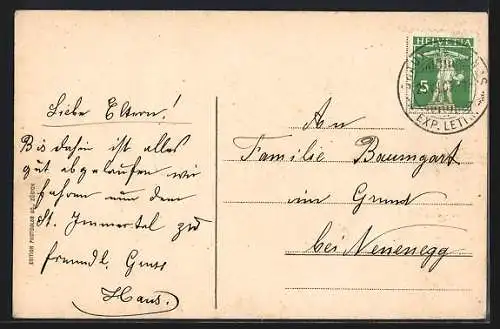 HELVETIA
5
EXP. LETT.
Liebe Eltern!
Bis dahin ist alles
gut abgelaufen wir
fahren nun dem
St. Immertal zu
freundl. Gruss
Hans.
An
Familie Baumgart
im Grund
bei Neuenegg
EDITION PHOTOGLOB ZÜRICH